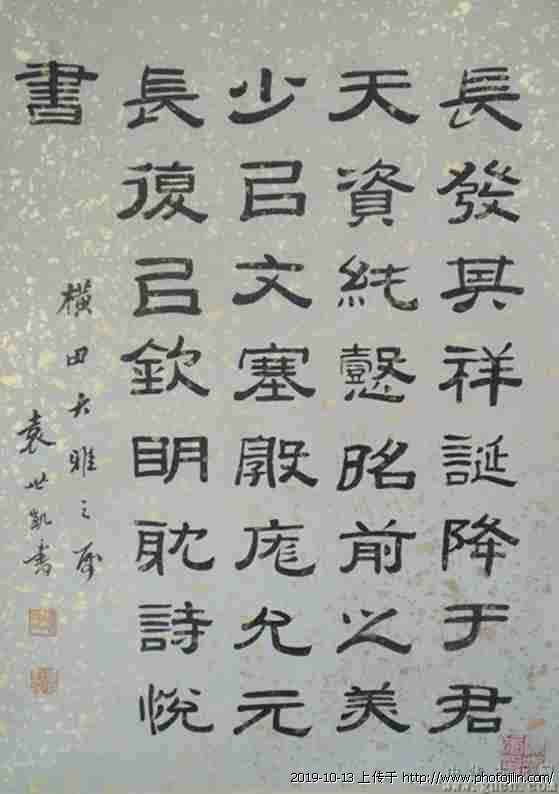 長發其祥誕降于君
天資純懿昭前之美
少㠯文塞敦庬允元
長復㠯欽明耽詩悅
書
橫田大雅之屬
袁世凱書
2019-10-13 上传于 http://www.photojilin.com/